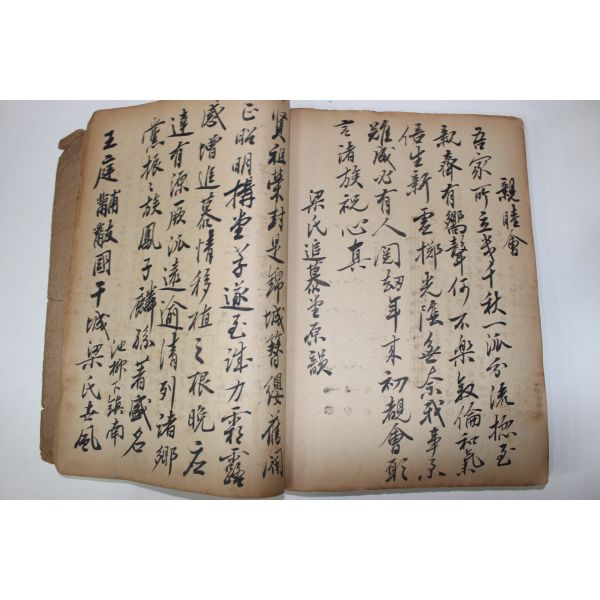 親睦會
吾家所立幾千秋一派分流揔至
親齋有嚮聲何不樂敍倫和氣
倍生新雲擲光陰無奈我事不
難成必有人閱劫年來初覩會聯
言諸族祝心真
梁氏追慕堂原韻
賢祖榮封是錦城簪纓舊閥
正昭明構堂草遂至誠力霜露
感增追慕情移植之根晚應
達有源厥派遠逾清列諸鄉
黨振〻族鳳子麟孫著盛名
池柳下鎮南
王庭黼黻國干城梁氏風